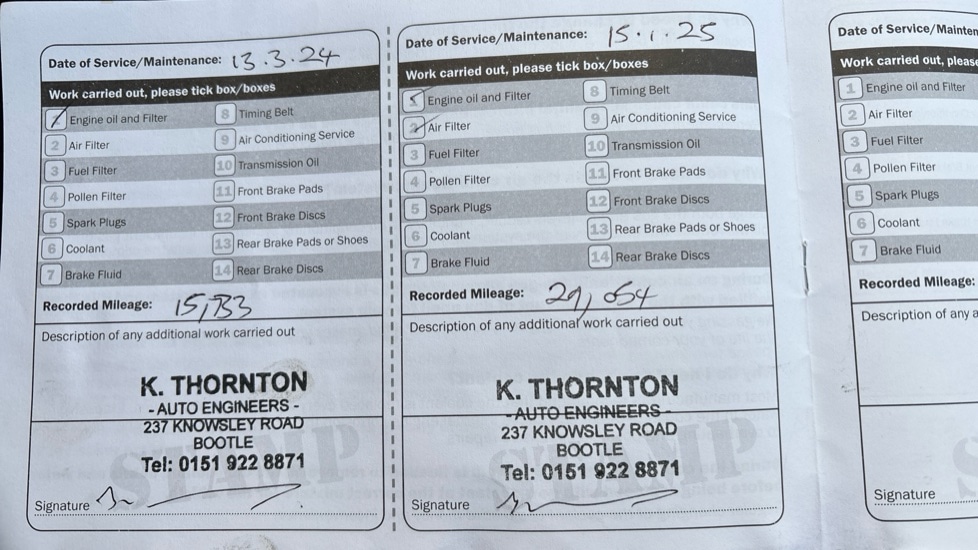 Date of Service/Maintenance: 13.3.24
Work carried out, please tick box/boxes
1 Engine oil and Filter
2 Air Filter
3 Fuel Filter
4 Pollen Filter
5 Spark Plugs
6 Coolant
7 Brake Fluid
8 Timing Belt
9 Air Conditioning Service
10 Transmission Oil
11 Front Brake Pads
12 Front Brake Discs
13 Rear Brake Pads or Shoes
14 Rear Brake Discs
Recorded Mileage:
Description of any additional work carried out
STAMP
K. THORNTON
- AUTO ENGINEERS -
237 KNOWSLEY ROAD
BOOTLE
Tel: 0151 922 8871
Signature
Date of Service/Maintenance: 15.1.25
Work carried out, please tick box/boxes
1 Engine oil and Filter
2 Air Filter
3 Fuel Filter
4 Pollen Filter
5 Spark Plugs
6 Coolant
7 Brake Fluid
8 Timing Belt
9 Air Conditioning Service
10 Transmission Oil
11 Front Brake Pads
12 Front Brake Discs
13 Rear Brake Pads or Shoes
14 Rear Brake Discs
Recorded Mileage: 29,054
Description of any additional work carried out
STAMP
K. THORNTON
- AUTO ENGINEERS -
237 KNOWSLEY ROAD
BOOTLE
Tel: 0151 922 8871
Signature
Date of Service/Mainten
Work carried out, please
1 Engine oil and Filter
2 Air Filter
3 Fuel Filter
4 Pollen Filter
5 Spark Plugs
6 Coolant
7 Brake Fluid
Recorded Mileage:
Description of any a
Signature